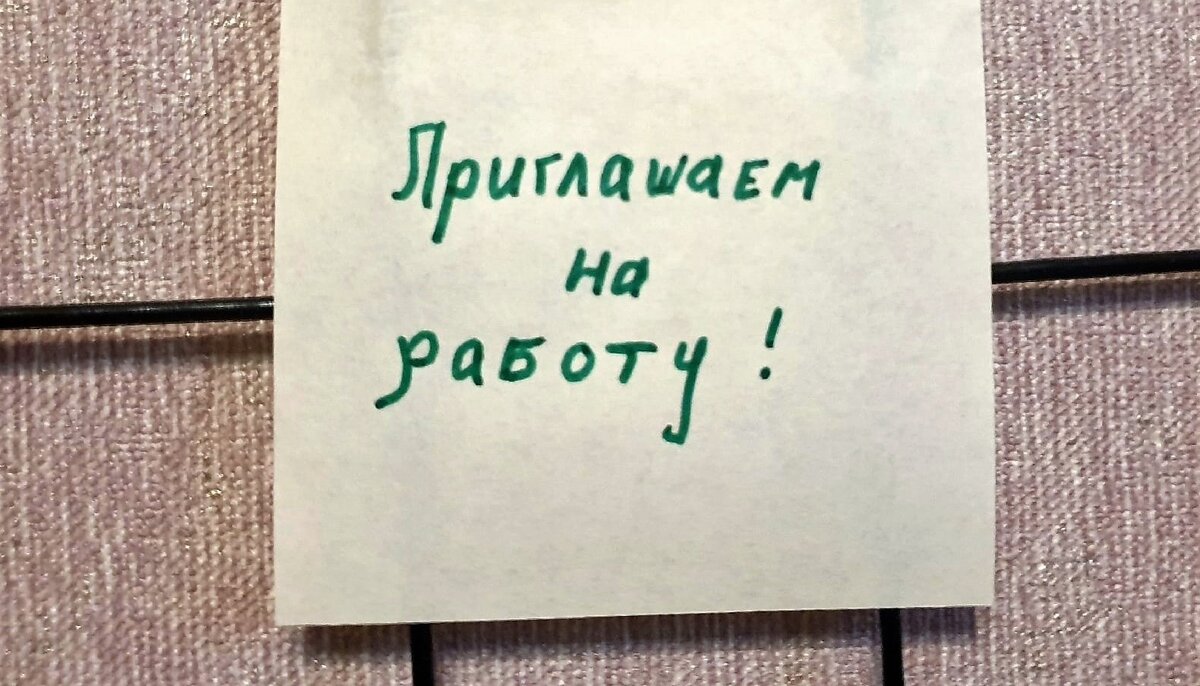 Приглашаем
на
работу!